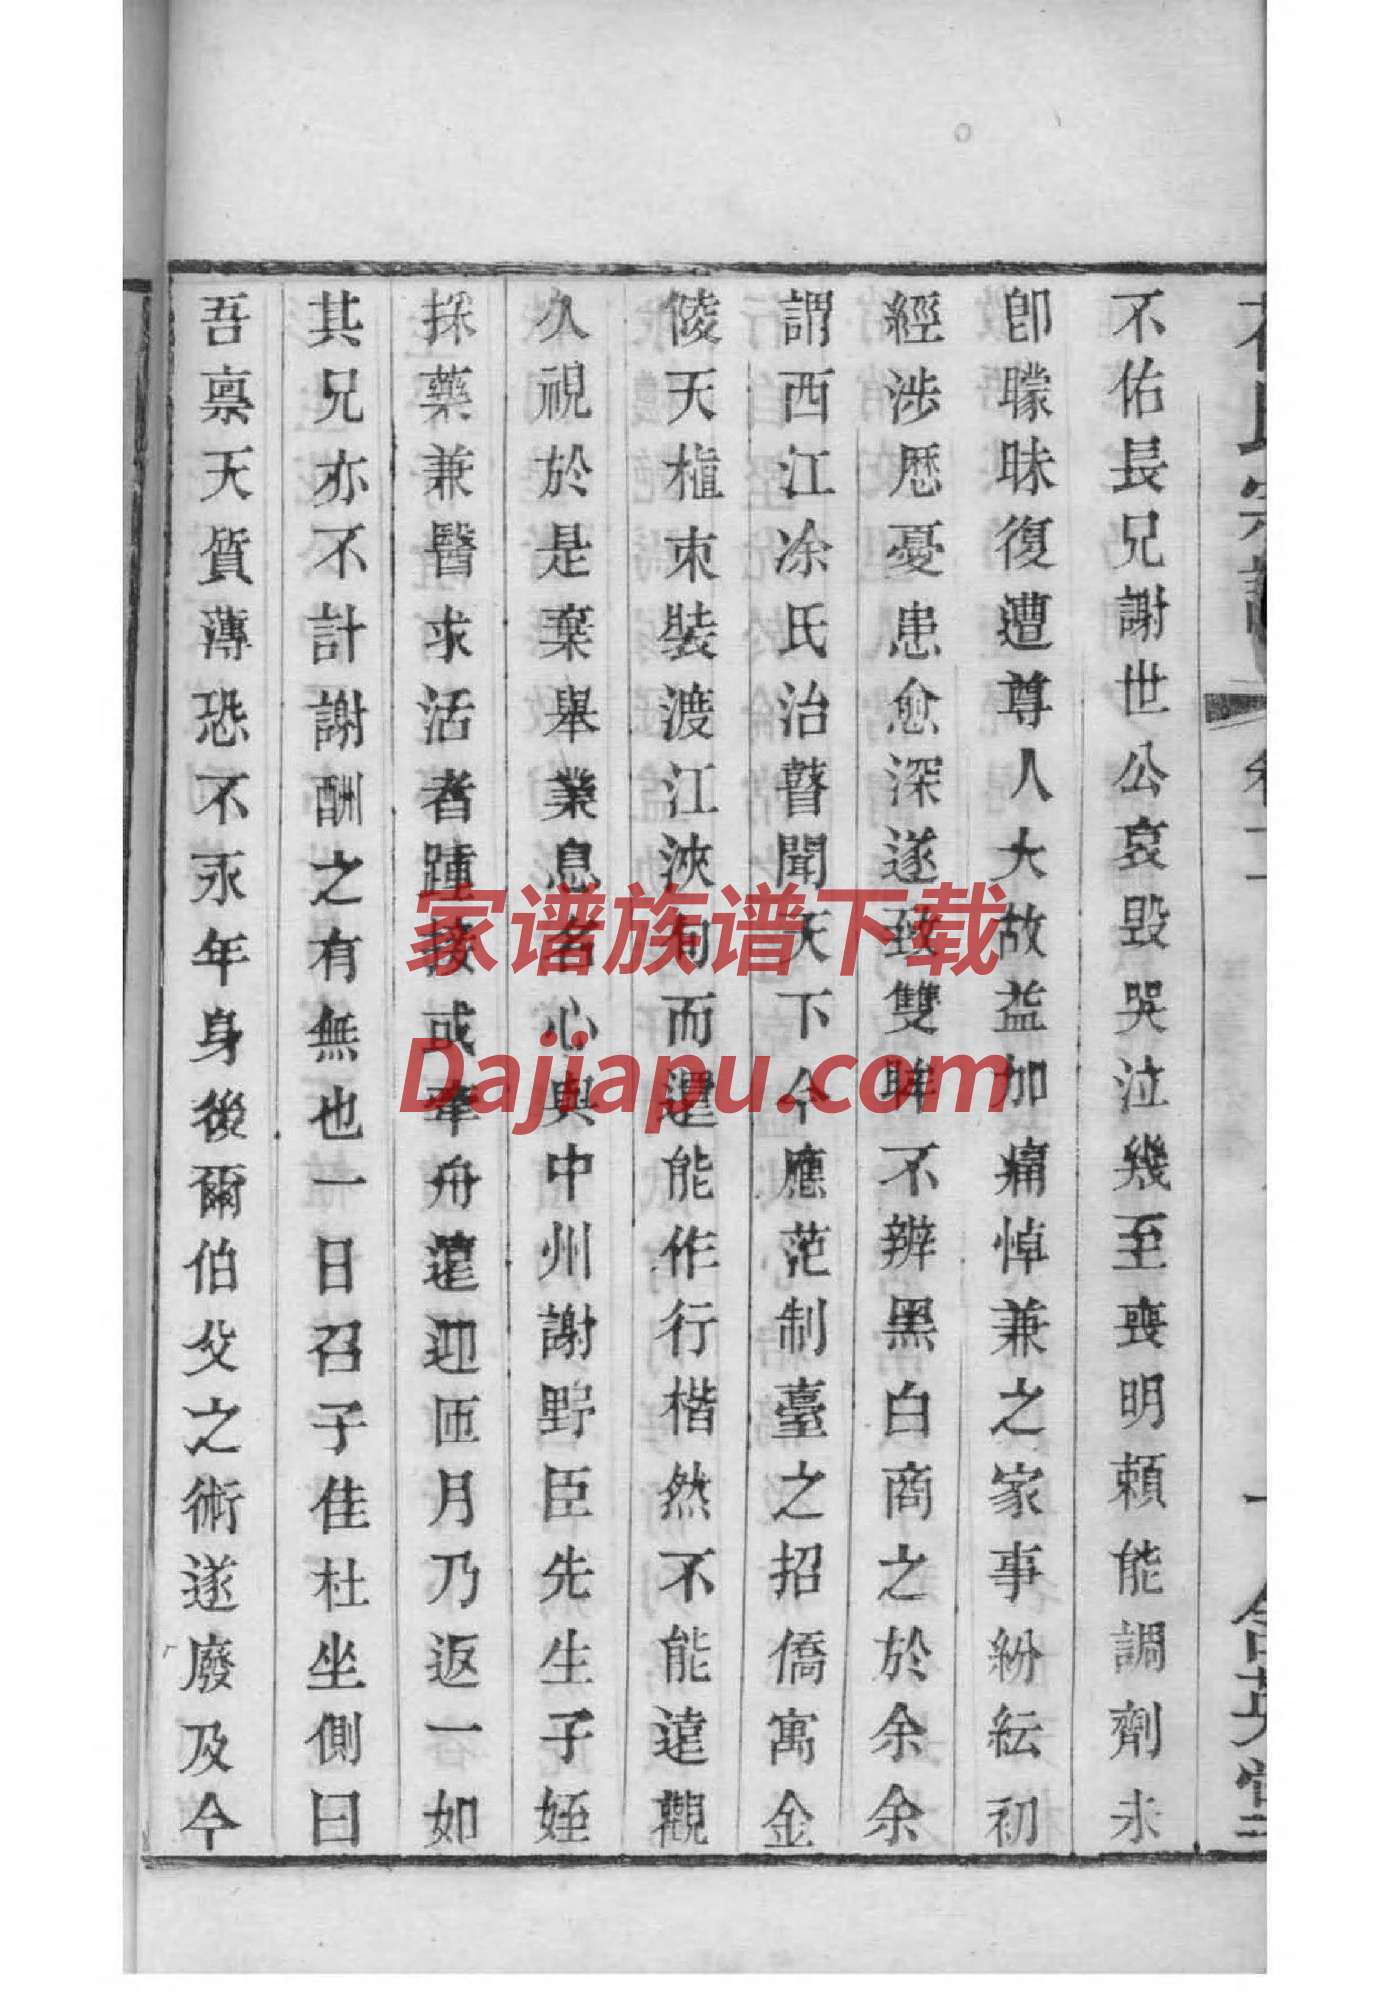 不佑長兄謝世公哀毀哭泣幾至喪明賴能調劑未
卽矇昧復遭尊人大故益加痛悼兼之家事紛紜初
經涉厯憂患愈深遂致雙眸不辨黑白商之於余余
謂西江凃氏治瞽聞天下今應范制臺之招僑寓金
陵天樞束裝渡江浹旬而還能作行楷然不能遠觀
久視於是棄舉業息名心與中州謝野臣先生子姪
採藥兼醫求活者踵接或牽舟遠迎匝月乃返一如
其兄亦不計謝酬之有無也一日召子佳杜坐側曰
吾禀天質薄恐不永年身後爾伯父之術遂廢及今
家谱族谱下载
Dajiapu.com